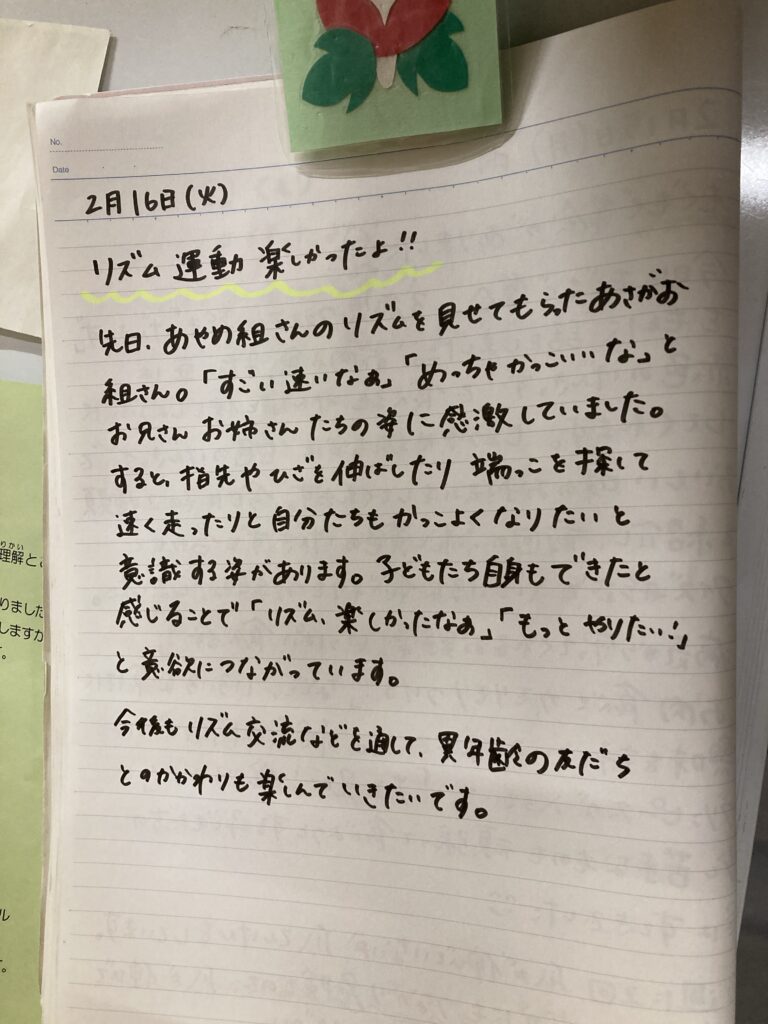 No.
Date
2月16日(火)
リズム運動 楽しかったよ!!
先日、あやめ組さんのリズムを見せてもらったあさがお
組さん。「すごい速いなぁ」「めっちゃかっこいいな」と
お兄さんお姉さんたちの姿に感激していました。
すると、指先やひざを伸ばしたり 端っこを探して
速く走ったりと自分たちもかっこよくなりたいと
意識する姿があります。子どもたち自身もできたと
感じることで「リズム、楽しかったなぁ」「もっとやりたい!」
と意欲につながっています。
今後もリズム交流などを通して、異年齢の友だち
とのかかわりも楽しんでいきたいです。
りかい
理解と
りました
しますか
す。
ル
す。